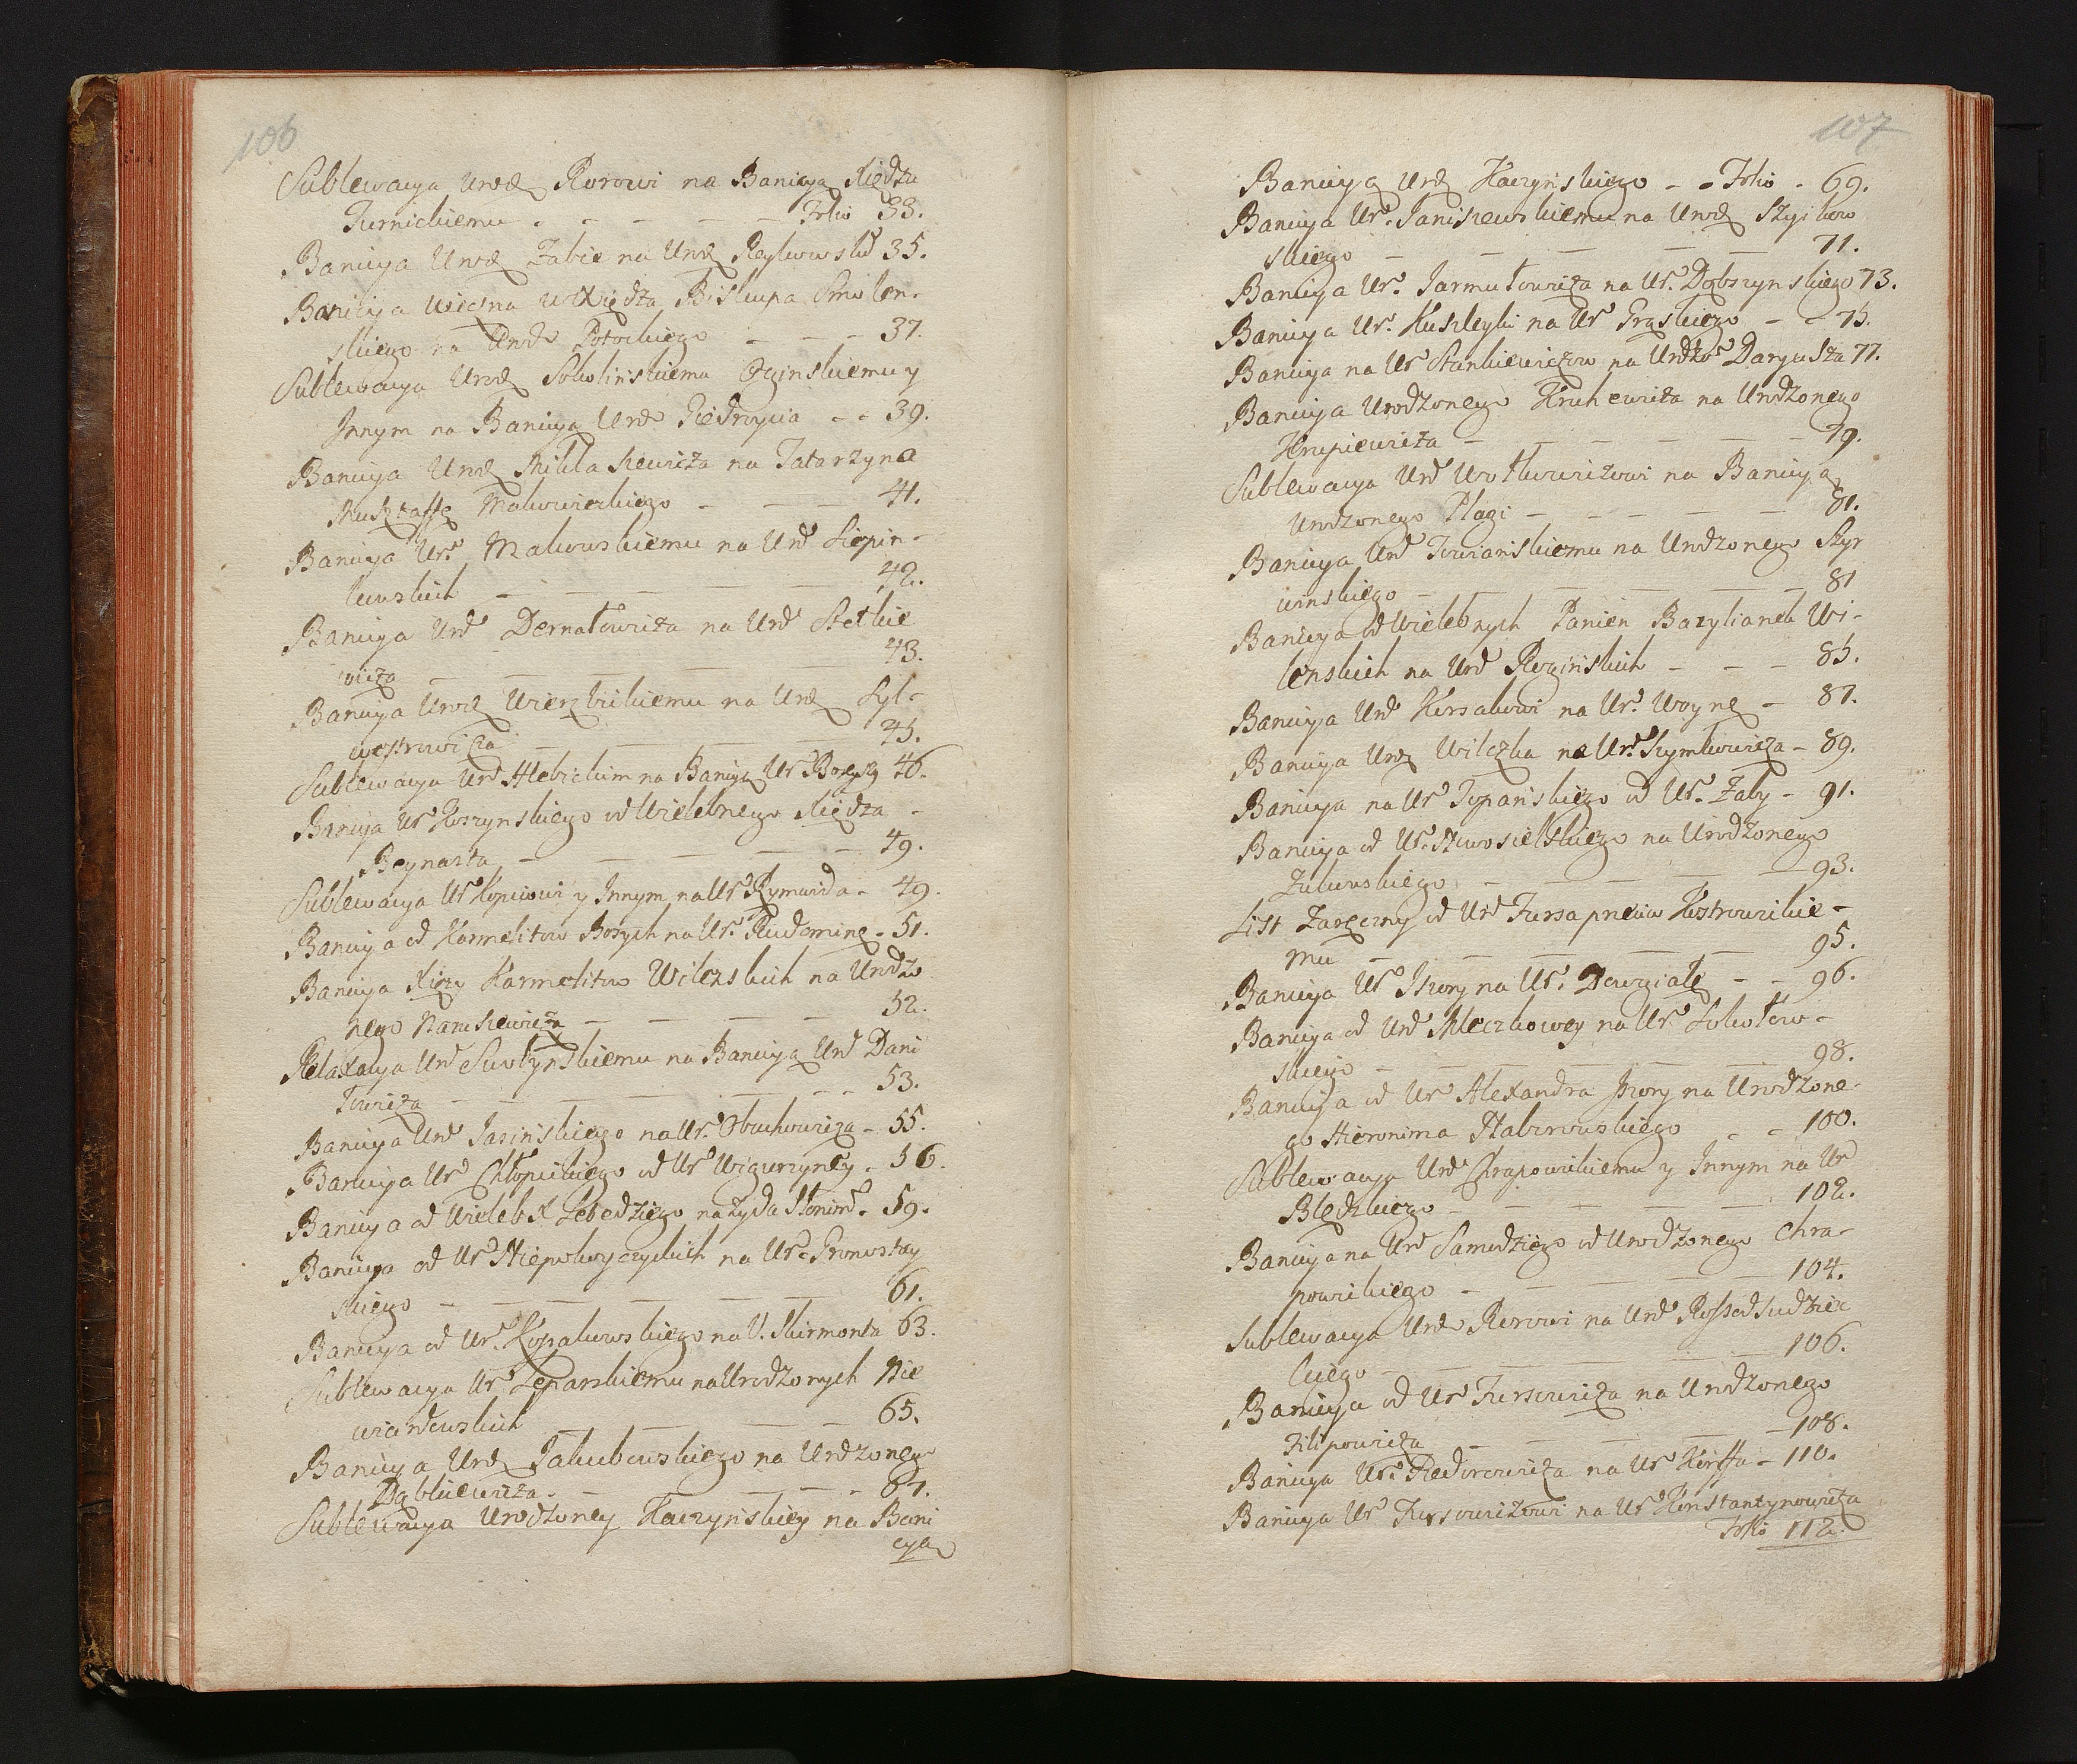 106
Sublewacya Urodz Rorowi na Banicyą Xiędzu
Turnickiemu - - - - - Folio 33.
Banicya Urodz Zabie na Urodz Reykowskd 35.
Banicya wieczna Ur Xiędza Biskupa Smolen-
skiego na Urod Potockiego - - - 37.
Sublewacya Urodz Sokolinskiemu Oginskiemu y
Innym na Banicyą Urod Giedroycia - - 39.
Banicya Urodz Mikla szewicza na Tatarzyna
Musztaffę Makowieckiego - - - 41.
Banicya Urd Makowskiemu na Urd
lewskich - - - - - 42.
Banicya Urd Dernałowicza na Urd Stetkie
wicza - - - - - 43.
Banicya Urodz Wierzbickiemu na Urodz Syl-
westrowicza - - - - - 45.
Sublewacya Urd Alebickim na Banicyą Ur 46.
Banicya Urd Koszynskiego od Wielebnego Xiędza -
Beynarta - - - - - - 49.
Sublewacya Urd Kopciowi y Innym na Urd Rymwida - 49.
Banicya od Karmelitow Bosych na Ur. Rudominę - 51.
Banicya Xięży Karmelitow Wilenskich na Urodzo
nego Naruszewicza - - - - 52.
Relaxacya Urd Suwtynskiemu na Banicyą Urd Dani
łowicza - - - - - - 53.
Banicya Urd Jasinskiego na Ur. Obuchowicza - 55.
Banicya Urd Chłopickiego od Urd Wigurzyney - 56.
Banicya od Wieleb X Lebedziego na Żyda Słonimd. 59.
Banicya od Urd Niepokoyczyckich na Urd Gronostay
skiego - - - - - - 61.
Banicya od Ur. Kossakowskiego na U. Skirmonta 63.
Sublewacya Urd Leparskiemu na Urodzonych Nie
wiarowskich - - - - 65.
Banicya Urodz Jakubowskiego na Urodzonego
Dąbkiewicza. - - - - 67.
Sublewacya Urodzoney Kaczynskiey na Bani
cyą
107
Banicyą Urodz Kaczynskiego - - Folio - 69.
Banicya Ur. Janiszewskiemu na Urodz Szyszkow
skiego - - - - - 71.
Banicya Urd. Jarmułowicza na Ur. Dobszynskiego 73.
Banicya Ur. Kuszleyki na Urd Grąskiego - - 75.
Banicya na Ur Stankiewiczow na Urodzod Daryusza 77.
Banicya Urodzonego Kruhewicza na Urodzonego
Krupiewicza - - - - - 79.
Sublewacya Urd Wołkowiczowi na Banicyą
Urodzonego Plagi - - - - - 81.
Banicya Urd Towianskiemu na Urodzonego Szyr
winskiego - - - - - 81
Banicya od Wielebnych Panien Bazylianek Wi-
lenskich na Urd Roginskich - - - 85.
Banicya Urd Korsakowi na Ur. Woynę - 87.
Banicya Urodz Wilczka na Urd Szymkowicza - 89.
Banicya na Urd Topanskiego od Ur. Zaby - 91.
Banicya od Ur. Nowosielskiego na Urodzonego
Zukowskiego - - - - - 93.
List Zaręczny od Urd Tursa prewo Kostrowickie-
mu - - - - - 95.
Banicya Urd Iwony na Ur. Dowgiałę - - 96.
Banicya od Urd Kleczkowey na Ur. Sokołow-
skiego - - - - - 98.
Banicya od Ur Alexandra Iwony na Urodzone-
go Hieronima Stabrowskiego - - 100.
Sublewacya Urd Chrapowickiemu y Innym na Ur
Błędzkiego - - - - - 102.
Banicya na Urd Samodziego od Urodzonego Chra-
powickiego - - - - - 104.
Sublewacya Urod Rorowi na Urd Rossochsudzier
ckiego - - - - - 106.
Banicya od Urd Tursowicza na Urodzonego
Filipowicza - - - - - 108.
Banicya Urd Fiedorowicza na Urd Korffa - 110.
Banicya Urd Tursowiczowi na Urd Konstantynowicza
Folio 112.